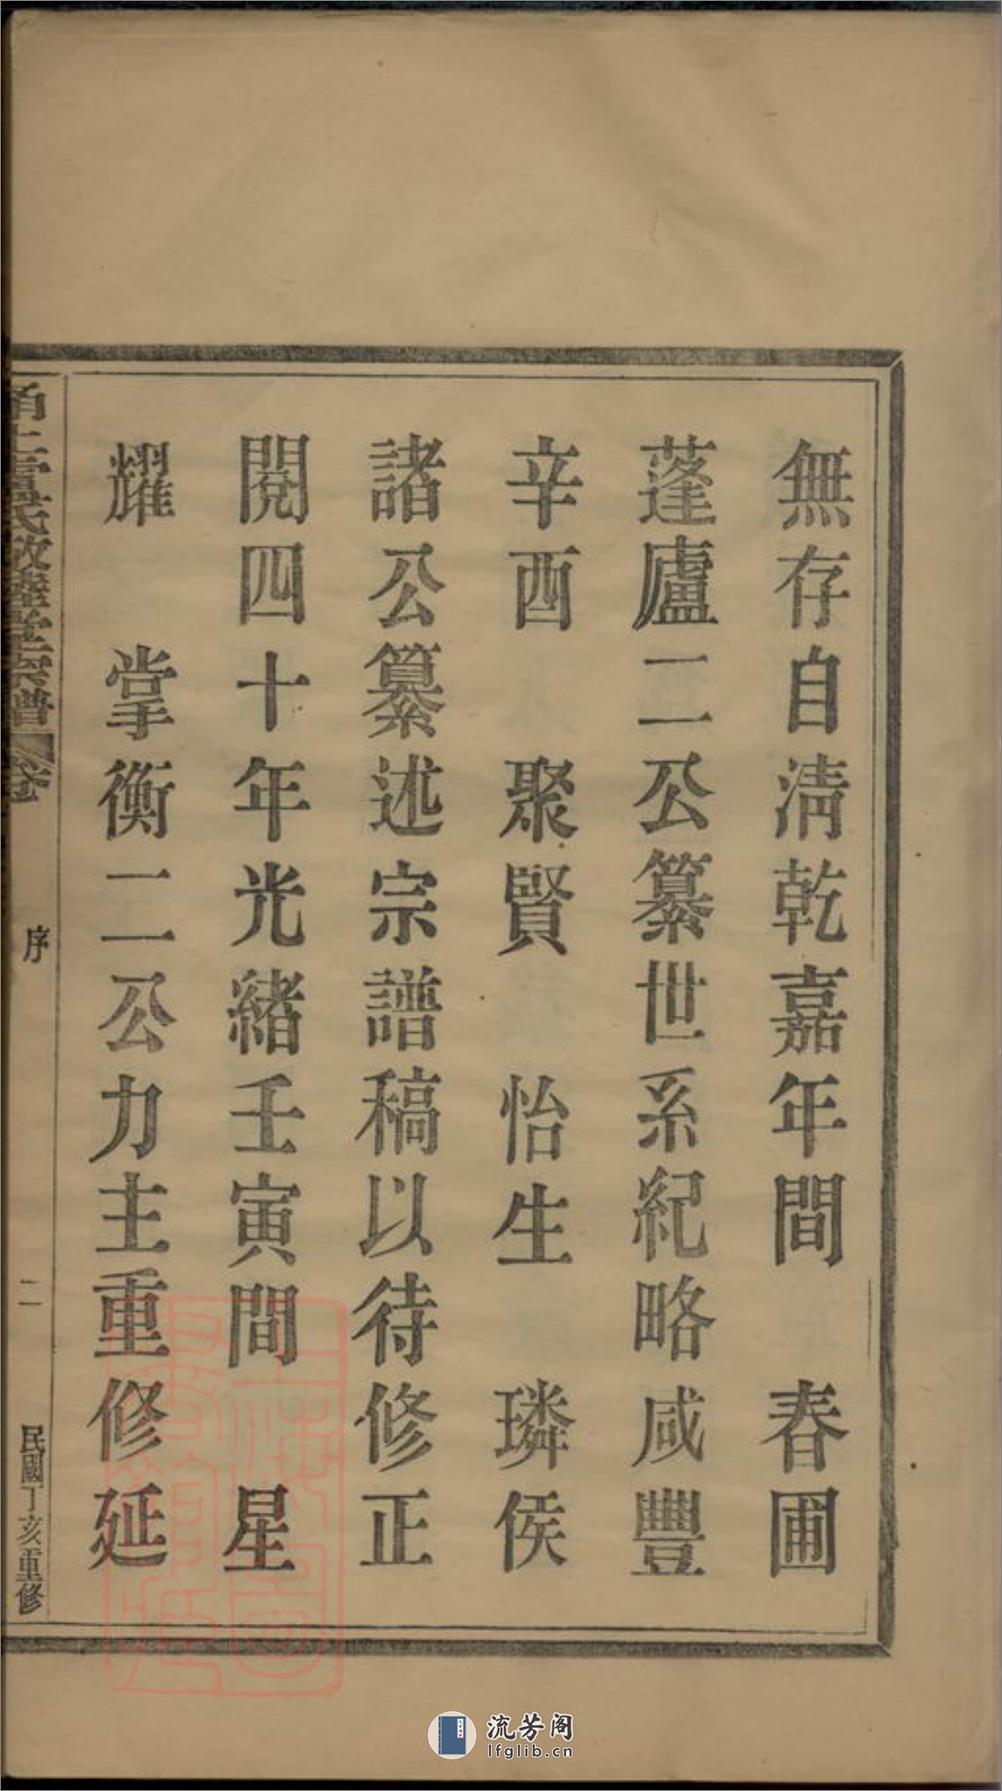 無存自清乾嘉年間　春圃
蓬廬二公纂世系紀略咸豐
辛酉　聚賢　怡生　璘侯
諸公纂述宗譜稿以待修正
閱四十年光緒壬寅間　星
耀　掌衡二公力主重修延
甬上雷氏敦睦堂宗譜
序
二
民國丁亥重修
流芳阁
lfglib.cn